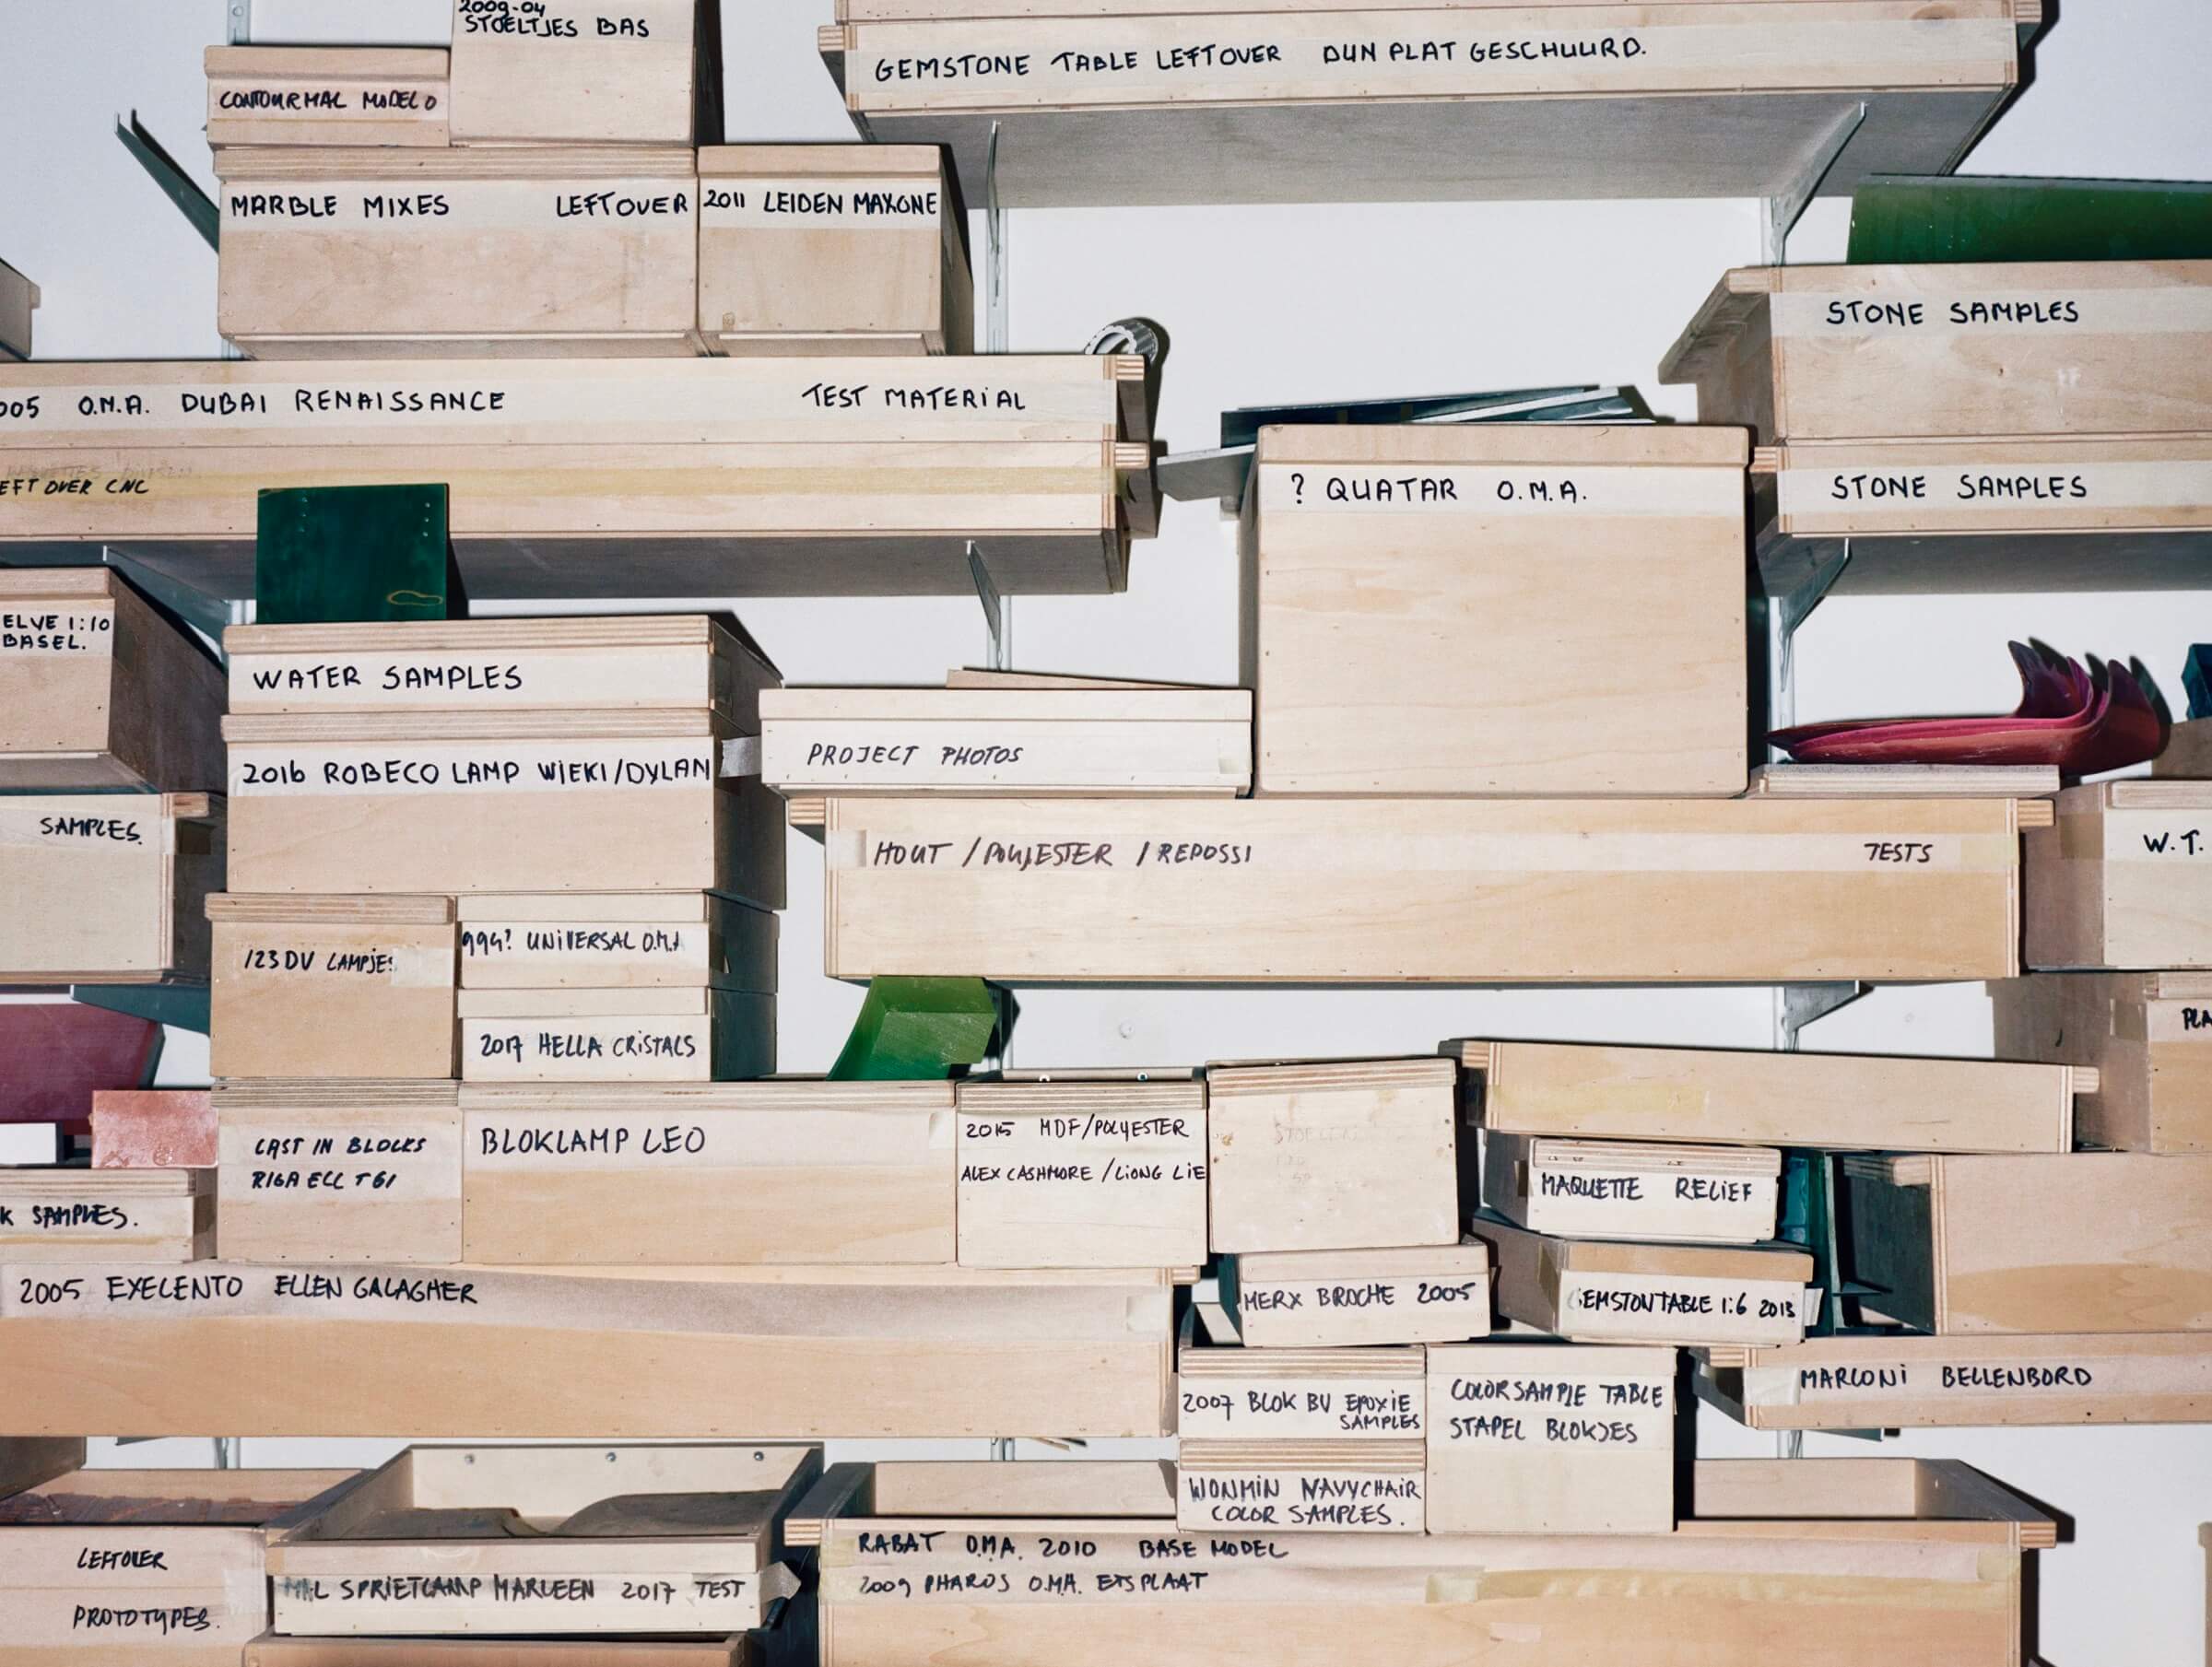 2009-04
STOELTJES BAS
GEMSTONE TABLE LEFTOVER DUN PLAT GESCHUURD.
CONTOURMAL MODELO
MARBLE MIXES LEFTOVER
2011 LEIDEN MAXONE
STONE SAMPLES
005 O.M.A. DUBAI RENAISSANCE TEST MATERIAL
EFT OVER CNC
? QUATAR O.M.A.
STONE SAMPLES
ELVE 1:10
BASEL.
WATER SAMPLES
PROJECT PHOTOS
2016 ROBECO LAMP WIEKI/DYLAN
SAMPLES.
HOUT / POLYESTER / REPOSSI TESTS
W.T.
123 DV LAMPJES
994? UNIVERSAL O.M.A
2017 HELLA CRISTALS
PLA
CAST IN BLOCKS
RIGA ECC T61
BLOKLAMP LEO
2015 MDF/POLYESTER
ALEX CASHMORE / LIONG LIE
MAQUETTE RELIEF
K SAMPLES.
2005 EXELENTO ELLEN GALAGHER
MERX BROCHE 2005
GEMSTONTABLE 1:6 2013
2007 BLOK BV EPOXIE
SAMPLES
COLORSAMPLE TABLE
STAPEL BLOKJES
MARCONI BELLENBORD
WONMIN NAVYCHAIR
COLOR SAMPLES.
LEFTOVER
PROTOTYPES.
MAL SPRIETLAMP MARLEEN 2017 TEST
RABAT O.M.A. 2010 BASE MODEL
2009 PHAROS O.M.A. ETSPLAAT